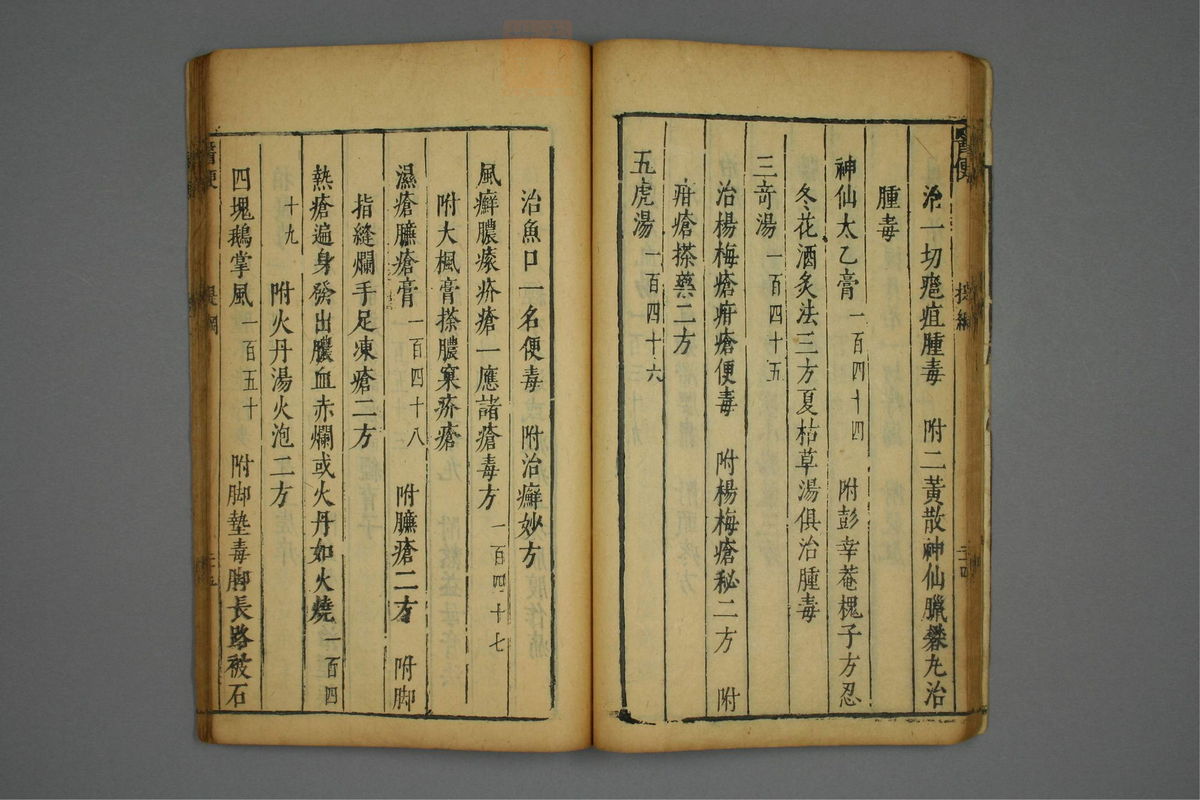 醫便
提綱
二十四
治一切瘡疽腫毒　附二黃散神仙臘礬丸治
腫毒
神仙太乙膏一百四十四　附彭幸菴槐子方忍
冬花酒炙法三方夏枯草湯俱治腫毒
三奇湯一百四十五
治楊梅瘡疳瘡便毒　附楊梅瘡秘二方　附
疳瘡搽藥二方
五虎湯一百四十六
治魚口一名便毒　附治癬妙方
風癬膿瘃疥瘡一應諸瘡毒方一百四十七
附大楓膏搽膿窠疥瘡
濕瘡臁瘡膏一百四十八　附臁瘡二方　附脚
指縫爛手足凍瘡二方
熱瘡遍身發出膿血赤爛或火丹如火燒一百四
十九　附火丹湯火泡二方
四塊鵝掌風一百五十　附脚墊毒脚長路被石
醫便
提綱
二十五